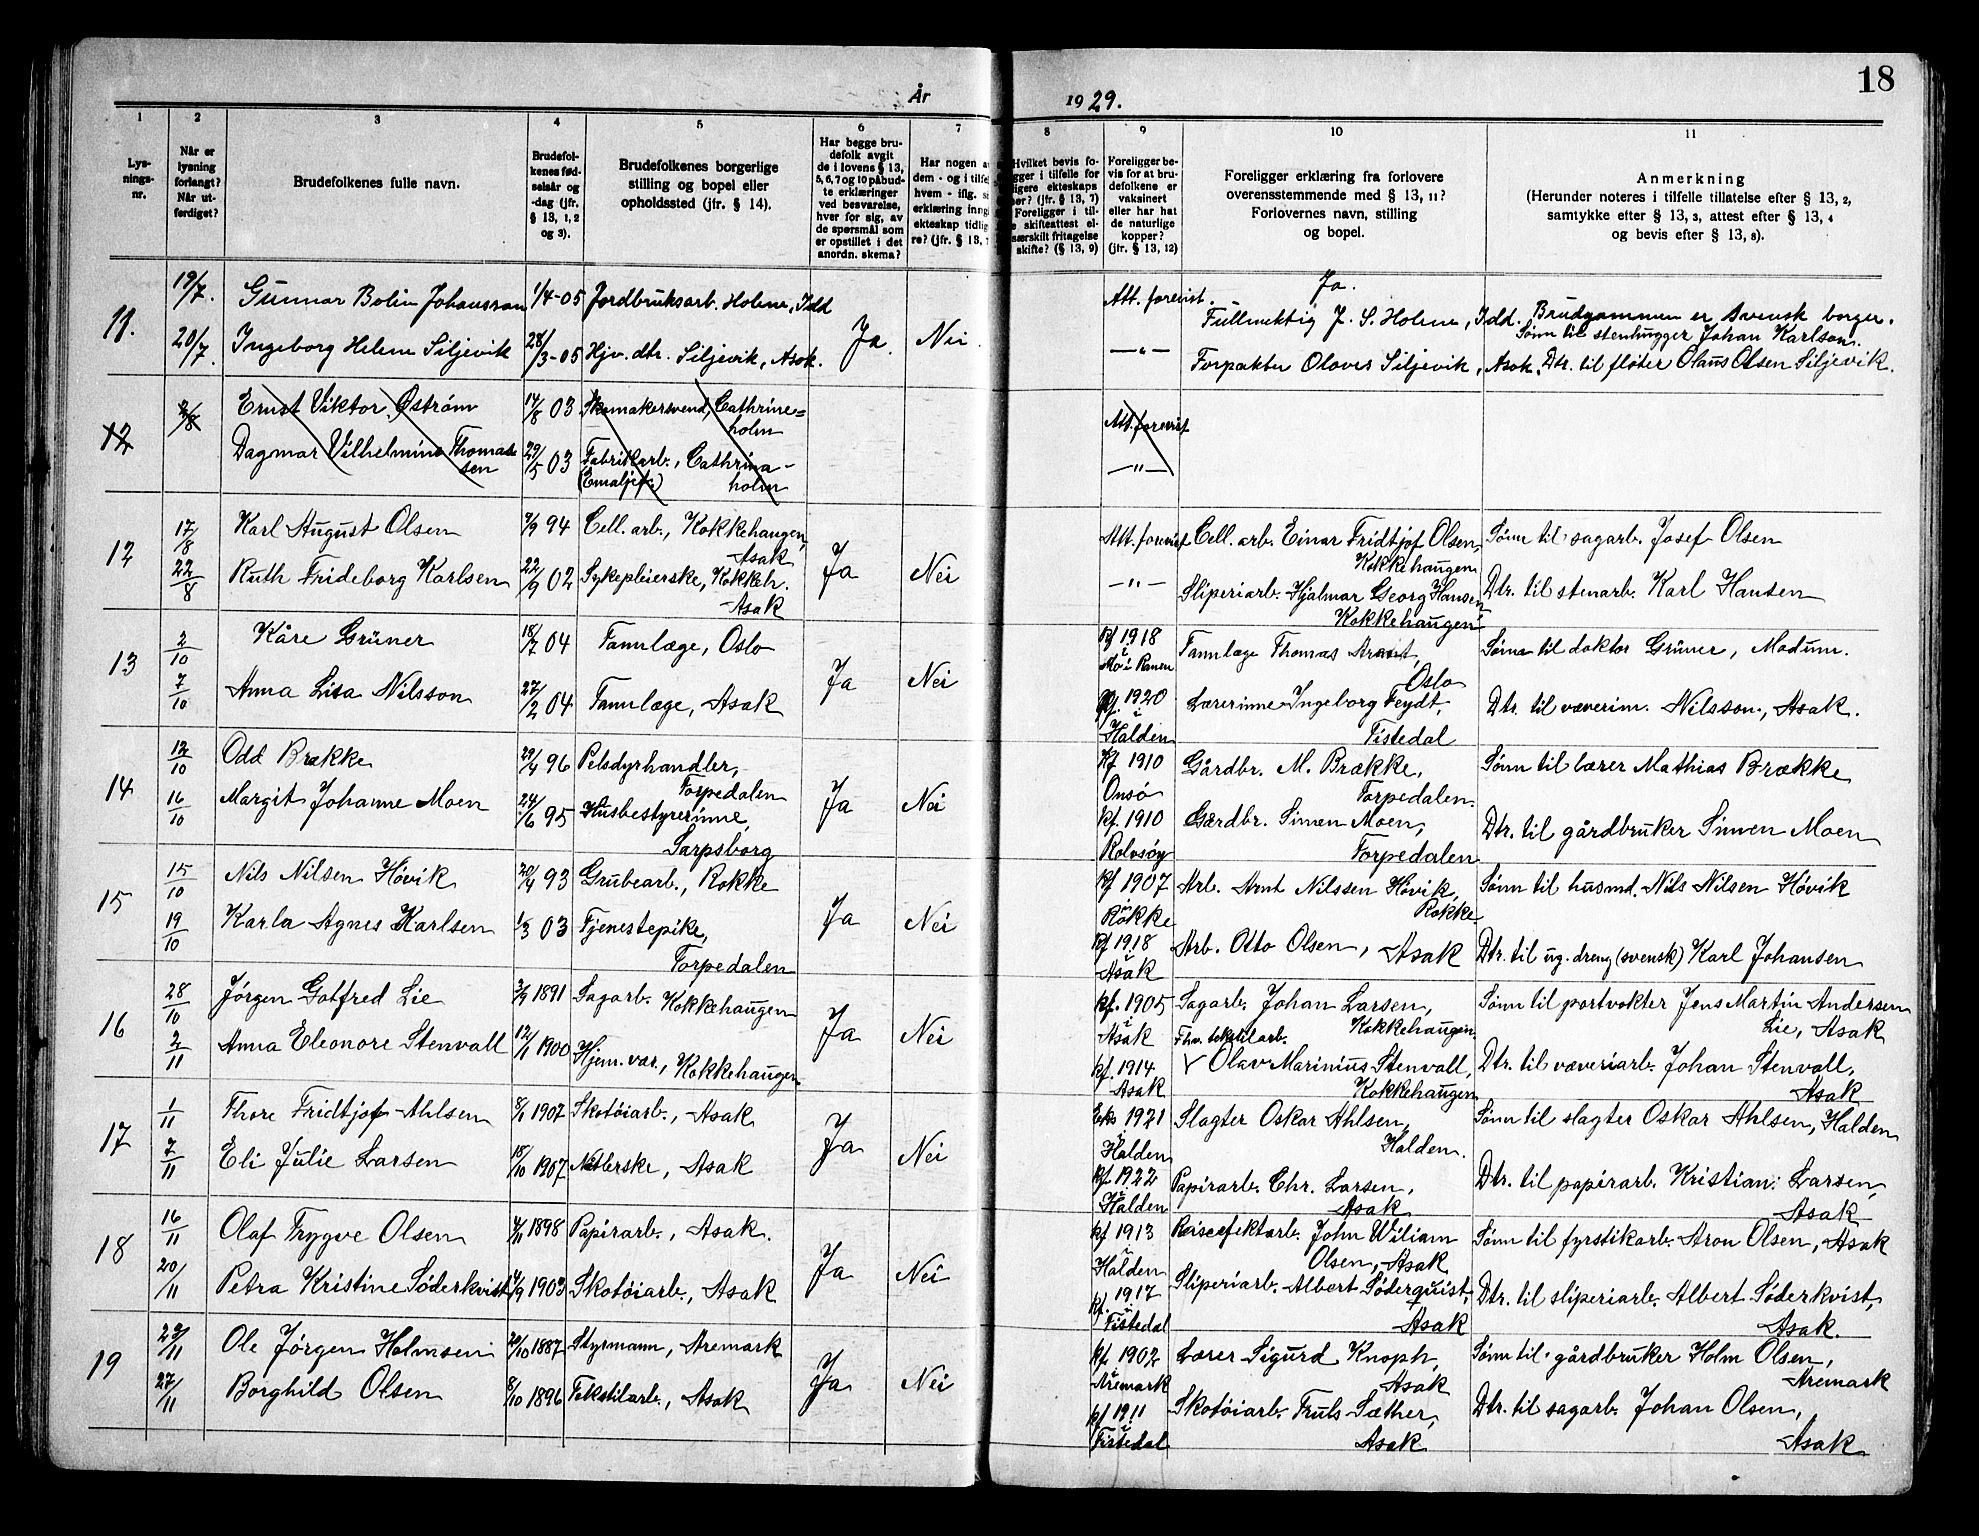 18
År 1929.
1
Lys-
nings-
nr.
2
Når er
lysning
forlangt?
Når ut-
ferdiget?
3
Brudefolkenes fulle navn.
4
Brudefol-
kenes fød-
selsår og
-dag (jfr.
§ 13, 1, 2
og 3).
5
Brudefolkenes borgerlige
stilling og bopel eller
opholdssted (jfr. § 14).
6
Har begge bru-
defolk avgit
de i lovens § 13,
5, 6, 7 og 10 påbud-
te erklæringer
ved besvarelse,
hver for sig, av
de spørsmål som
er opstillet i det
anordn. skema?
7
Har nogen a
dem - og i tilfel
hvem - iflg. s
erklæring inng
ekteskap tidlig
re? (jfr. § 13, 7
8
Hvilket bevis fo-
gger i tilfelle for
ligere ekteskaps
ør? (jfr. § 13, 7)
Foreligger i til-
e skifteattest el-
særskilt fritagelse
skifte? (§ 13, 9)
9
Foreligger be-
vis for at bru-
defolkene er
vaksinert
eller har hat
de naturlige
kopper?
(jfr. § 13, 12)
10
Foreligger erklæring fra forlovere
overensstemmende med § 13, 11?
Forlovernes navn, stilling
og bopel.
11
Anmerkning
(Herunder noteres i tilfelle tillatelse efter § 13, 2,
samtykke efter § 13, 3, attest efter § 13, 4
og bevis efter § 13, 8).
11.
19/7. Gunnar Bolin Johansson 1/4-05 Jordbruksarb. Holene, Idd Att. forevist. Ja.
Fullmektig J. S. Holene, Idd. Brudgommen er svensk borger.
Sønn til stenhugger Johan Karlson.
20/7. Ingeborg Helene Siljevik 28/3-05 Hjv. dtr. Siljevik, Asak. Ja. Nei. —"— Forpakter Olaves Siljevik, Asak. Dtr. til fløter Olaus Olsen Siljevik.
12
2/8 Ernst Viktor Østrøm 14/8 03 Skomakersvend, Cathrine=
holm Att. forevist
Dagmar Vilhelmine Thomas
sen 29/5 03 Fabrikkarb., Cathrine-
(Emaljef.) holm —"—
12
17/8 Karl August Olsen 9/9 94 Cell. arb., Kokkehaugen,
Asak Att. forevist Cell. arb. Einar Fridtjof Olsen,
Kokkehaugen Sønn til sagarb. Josef Olsen
22/8 Ruth Frideborg Karlsen 22/9 02 Sykepleierske, Kokkeh.
Asak Ja Nei —"— Sliperiarb. Hjalmar Georg Hansen
Kokkehaugen Dtr. til stenarb. Karl Hansen
13
2/10 Kåre Grüner 18/7 04 Tannlæge, Oslo 1918
i
Mo i Ranen Tannlæge Thomas
Oslo Sønn til doktor Grüner, Modum.
7/10 Anna Lisa Nilsson 27/2 04 Tannlæge, Asak Ja Nei 1920
i
Halden Lærerinne Ingeborg Feydt,
Tistedal Dtr. til væverim. Nilsson, Asak.
14
12/10 Odd Brække 29/4 96 Pelsdyrhandler,
Torpedalen kf 1910
Onsø Gårdbr. M. Brække,
Torpedalen. Sønn til lærer Mathias Brække
16/10 Margit Johanne Moen 24/6 95 Husbestyrerinne,
Sarpsborg Ja Nei kf. 1910
Rolvsøy Gårdbr. Simen Moen,
Torpedalen Dtr. til gårdbruker Simen Moen
15
15/10 Nils Nilsen Høvik 20/4 93 Grubearb., Rokke kf 1907
i
Rokke Arb. Arnt Nilssen Høvik,
Rokke Sønn til husmd. Nils Nilsen Høvik
19/10 Karla Agnes Karlsen 1/3 03 Tjenestepike,
Torpedalen Ja Nei kf 1918
i
Asak Arb. Otto Olsen, Asak Dtr. til ug. dreng (svensk) Karl Johansen
16
28/10 Jørgen Gotfred Lie 3/9 1891 Sagarb. Kokkehaugen kf. 1905
i
Asak Sagarb. Johan Larsen,
Kokkehaugen. Sønn til portvokter Jens Martin Andersen
Lie, Asak
2/11 Anna Eleonore Stenvall 12/1 1900 Hjem. vær., Kokkehaugen Ja Nei kf. 1914
Asak Fhv. tekstilarb.
Olav Marinius Stenvall,
Kokkehaugen Dtr. til væveriarb. Johan Stenvall,
Asak
17
1/11 Thore Fridtjof Ahlsen 8/1 1907 Skotøiarb., Asak 1921
i
Halden Slagter Oskar Ahlsen,
Halden. Sønn til slagter Oskar Ahlsen, Halden
7/11 Eli Julie Larsen 15/10 1907 Nåtlerske, Asak Ja Nei kf 1922
i
Halden Papirarb. Chr. Larsen,
Asak Dtr. til papirarb. Kristian Larsen,
Asak
18
16/11 Olaf Trygve Olsen 4/11 1898 Papirarb., Asak. kf 1913
i
Halden Reiseefektarb. John Wiliam
Olsen, Asak Sønn til fyrstikarb. Aron Olsen, Asak
20/11 Petra Kristine Söderkvist 4/9 1903 Skotøiarb., Asak Ja Nei kf. 1917
i
Tistedal Sliperiarb. Albert Söderquist,
Asak Dtr. til sliperiarb. Albert Söderkvist,
Asak.
19
23/11 Ole Jørgen Holmsen 20/10 1887 Styrmann, Aremark kf. 1902
i
Aremark Lærer Sigurd Knoph,
Asak Sønn til gårdbruker Holm Olsen,
Aremark
27/11 Borghild Olsen 8/10 1896 Tekstilarb., Asak Ja Nei kf 1911
i
Tistedal Skotøiarb. Truls Sæther,
Asak Dtr. til sagarb. Johan Olsen,
Asak